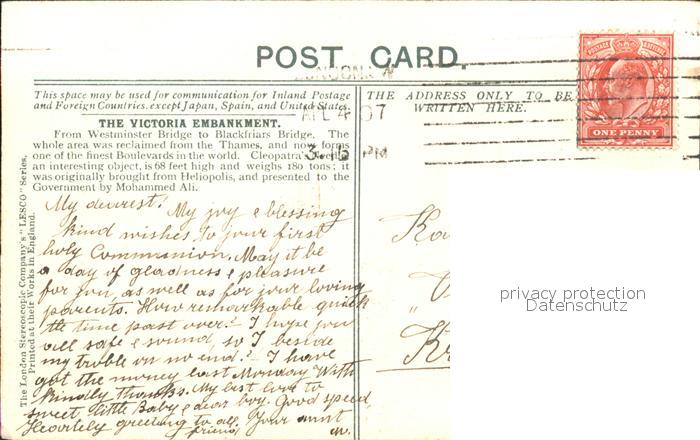 POST CARD.
LONDON. W
AP 4 07
3. 15 PM
This space may be used for communication for Inland Postage
and Foreign Countries, except Japan, Spain, and United States.
THE VICTORIA EMBANKMENT.
From Westminster Bridge to Blackfriars Bridge. The
whole area was reclaimed from the Thames, and now forms
one of the finest Boulevards in the world. Cleopatra's Needle
an interesting object, is 68 feet high and weighs 180 tons; it
was originally brought from Heliopolis, and presented to the
Government by Mohammed Ali.
The London Stereoscopic Company's "LESCO" Series.
Printed at their Works in England.
My dearest! My joy & blessing
kind wishes to your first
holy Communion. May it be
a day of gladness & pleasure
for you, as well as for your loving
parents. How remarkable quick
the time past over? I hope you
all safe & sound, so I beside
my troble on no end? - I have
got the money last Monday With
kindly thanks. My best love to
sweet little Baby & dear boy. Good speed
Heartely greeting to all. Your aunt
friend
THE ADDRESS ONLY TO BE
WRITTEN HERE.
POSTAGE & REVENUE
ONE PENNY
privacy protection
Datenschutz